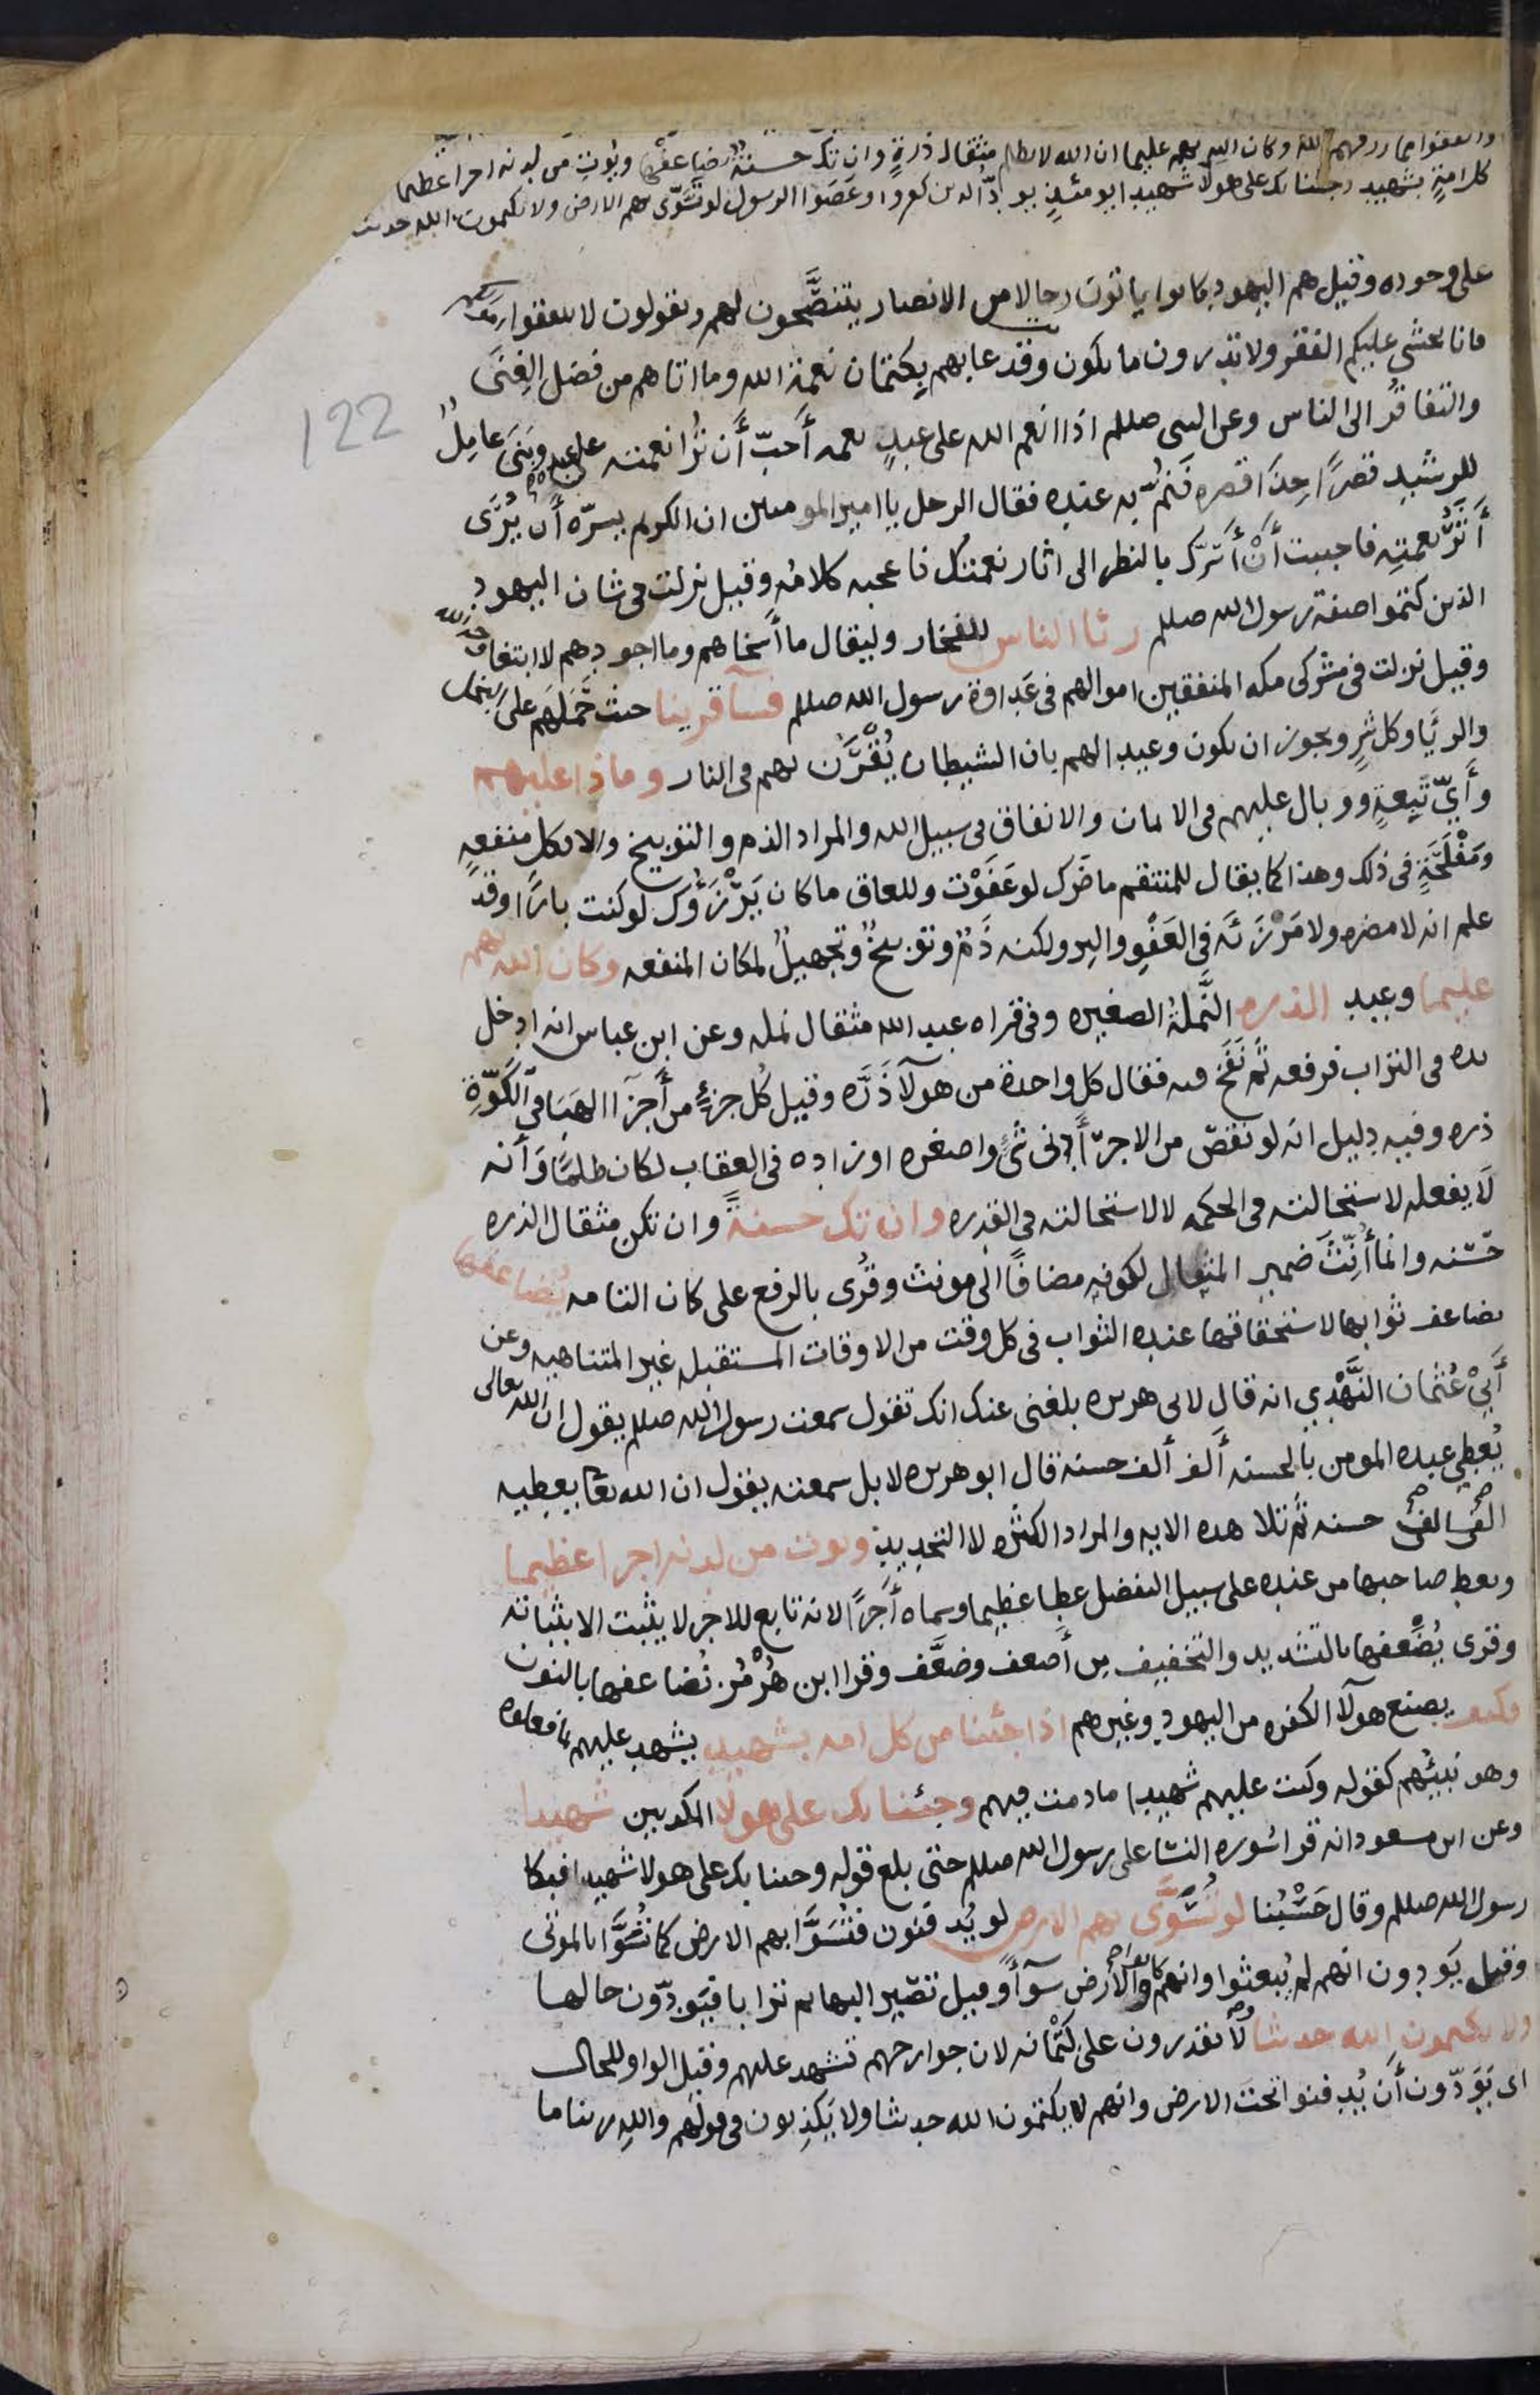 وانفقوا مما رزقهم الله وكان الله بهم عليما ان الله لا يظلم مثقال ذرةٍ وان تك حسنةً يضاعفها ويُوتِ من لدنه اجرا عظيما
كل امةٍ بشهيد وجئنا بك على هولا شهيدا يومئذٍ يودّ الذين كفروا وعَصَوا الرسول لو تُسَوّى بهم الارض ولا يكتمون الله حديثا
على وجوده وقيل هم اليهود كانوا ياتون رجالا من الانصار يتنصَّحون لهم ويقولون لا تنفقوا
فانا نخشى عليكم الفقر ولا تدرون ما يكون وقد عابهم بكتمان نعمة الله وما اتاهم من فضل الغِنَى
والتفاقُر الى الناس وعن النبى صللم اذا انعم الله على عبدٍ نعمه أَحبّ أَن تُرا نعمته على عبده وبَنَى عامِلٌ
للرشيد قصرًا حِذَا قصره فَنُمَّ به عنده فقال الرجل يا امير المومنين ان الكريم يسرّه أَن يُرَى
أَثَرُ نعمتِه فاحببت أَنْ أَسُرّك بالنظر الى اثار نعمتك فاعجبه كلامُه وقيل نزلت فى شان اليهود
الذين كتموا صفة رسول الله صللم رئا الناس للفخار وليقال ما أَسخاهم وما اجودهم لا ابتغا وجه الله
وقيل نزلت فى مشركى مكه المنفقين اموالهم فى عَدَاوة رسول الله صللم فسآ قرينا حيث حَمَلَهم على البخل
والرئَيا وكل شرٍ ويجوز ان يكون وعيدا لهم بان الشيطان يُقْرَن بهم فى النار وماذا عليهم
وأَيّ تَبِعةٍ ووبال عليهم فى الايمان والانفاق فى سبيل الله والمراد الذم والتوبيخ والا فكل منفعهٍ
ومَفْلَحَةٍ فى ذلك وهذا كما يقال للمنتقم ما ضرك لو عَفَوْت وللعاق ما كان يَرْزَؤُك لو كنت بارًا وقد
علم انه لا مضره ولا مَرْزَئَه فى العَفْوِ والبر ولكنه ذَمٌ وتوبيخٌ وتجهيلٌ لمكان المنفعه وكان الله بهم
عليما وعيد الذره النَّملة الصغيره وفى قراه عبد الله مثقال نمله وعن ابن عباس انه ادخل
يده فى التراب فرفعه ثم نَفَخ فيه فقال كل واحدة من هولآ ذَرّه وقيل كُل جزءٍ من أَجزآ الهَبا فى الكَوّةِ
ذره وفيه دليل انه لو نقص من الاجر أَدنى شئٍ واصغره او زاده فى العقاب لكان ظلمًا وَأنه
لَا يفعله لاستحالته فى الحكمه لا لاستحالته فى القدره وان تك حسنةً وان تكن مثقال الذره
حَسَنه وانما أُنِّثَ ضمير المثقال لكونه مضافًا الى مونث وقُرى بالرفع على كان التامه يُضاعفها
يضاعف ثوابها لاستحقاقها عنده الثواب فى كل وقت من الاوقات المستقبله غير المتناهيه وعن
أَبِيْ عُثمان النَّهْدِي انه قال لابى هريره بلغنى عنك انك تقول سمعت رسول الله صللم يقول ان الله تعالى
يُعْطِى عبده المومن بالحسنه أَلف ألف حسنه قال ابو هريره لا بل سمعته يقول ان الله تعا يعطيه
الفى الف حسنه ثم تلا هده الايه والمراد الكثره لا التحديد ويوت من لدنه اجرا عظيما
ويعط صاحبها من عنده على سبيل التفضل عطا عظيما وسماه أَجرًا لانه تابع للاجر لا يثبت الا بثباته
وقرى يُضَعِّفها بالتشديد والتخفيف من أَضعف وضعَّف وقرا ابن هُرْمُز نُضاعفها بالنون
فكيف يصنع هولآ الكفره من اليهود وغيرهم اذا جئنا من كل امه بشهيد يشهد عليهم بما فعلوه
وهو نبيئُهم كقوله وكنت عليهم شهيدا ما دمت فيهم وجئنا بك على هولا المكدبين شهيدا
وعن ابن مسعود انه قرا سُوره النسا على رسول الله صللم حتى بلغ قوله وجئنا بك على هولا شهيدا فبكا
رسول الله صللم وقال حَسْبُنا لو تُسَوَّى بهم الارض لو يُدفنون فتُسَوَّا بهم الارض كما تُسَوَّا بالموتى
وقيل يَودون انهم لم يُبعثوا وانهم كانوا والأرض سوآءً وقيل تصّير البهايم ترابا فيَودّون حالها
ولا يكتمون الله حديثا لَا يقدرون على كِتْمانه لان جوارحهم تشهد عليهم وقيل الواو للحال
اى يَوَدّون أَن يُدفنوا تحت الارض وانهم لا يكتمون الله حديثا ولا يَكذِبون فى قولهم والله ربنا ما
122